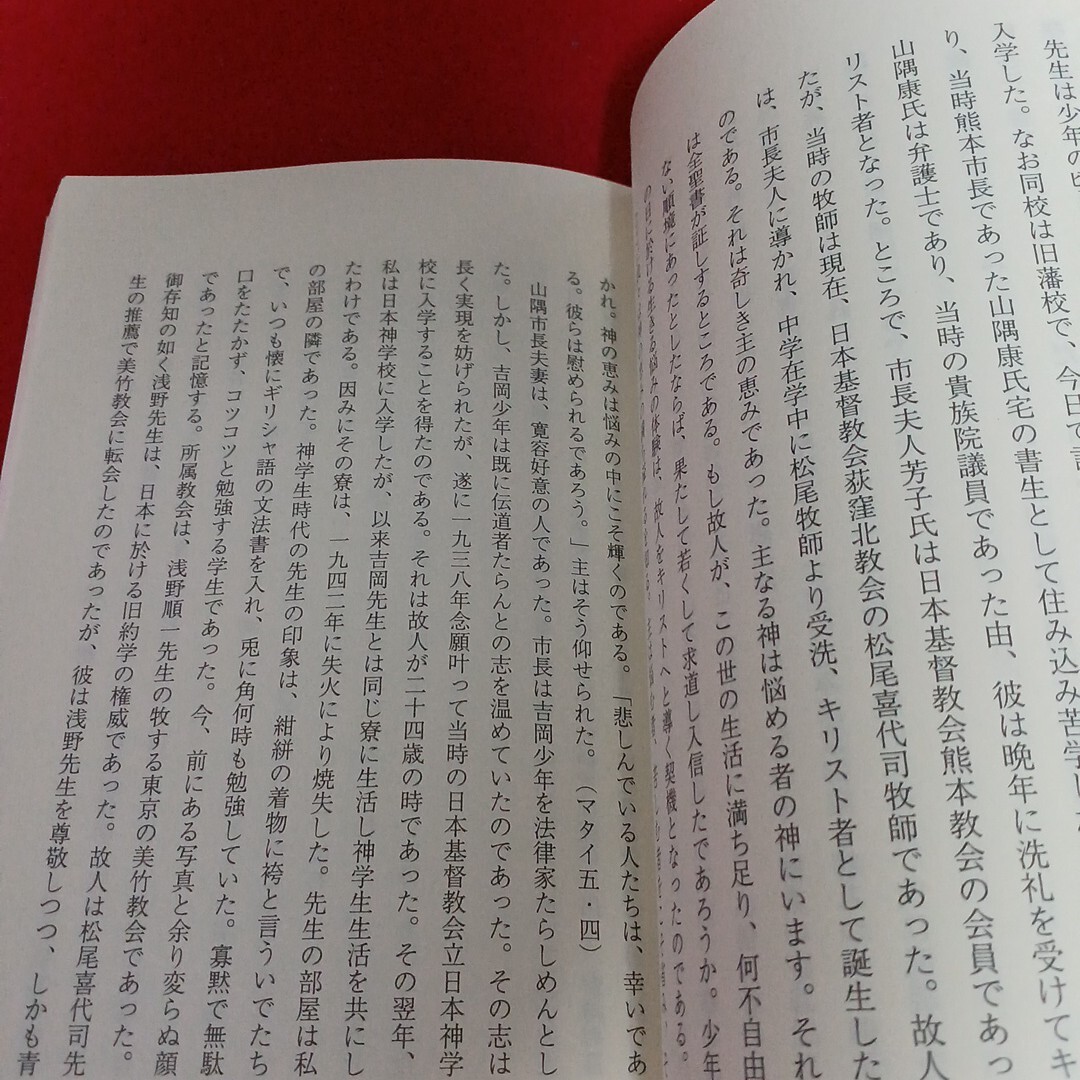 先生は少年のヒ
入学した。なお同校は旧藩校で、今日で言
り、当時熊本市長であった山隅康氏宅の書生として住み込み苦学し
山隅康氏は弁護士であり、当時の貴族院議員であった由、彼は晩年に洗礼を受けてキ
リスト者となった。ところで、市長夫人芳子氏は日本基督教会熊本教会の会員であっ
たが、当時の牧師は現在、日本基督教会荻窪北教会の松尾喜代司牧師であった。故人
は、市長夫人に導かれ、中学在学中に松尾牧師より受洗、キリスト者として誕生した
のである。それは奇しき主の恵みであった。主なる神は悩める者の神にいます。それ
は全聖書が証しするところである。もし故人が、この世の生活に満ち足り、何不自由
ない順境にあったとしたならば、果たして若くして求道し入信したであろうか。少年
の日に於ける生きる悩みの体験は、故人をキリストへと導く契機となったのである。
かれ。神の恵みは悩みの中にこそ輝くのである。「悲しんでいる人たちは、幸いであ
る。彼らは慰められるであろう。」主はそう仰せられた。（マタイ五・四）
山隅市長夫妻は、寛容好意の人であった。市長は吉岡少年を法律家たらしめんとし
た。しかし、吉岡少年は既に伝道者たらんとの志を温めていたのであった。その志は
長く実現を妨げられたが、遂に一九三八年念願叶って当時の日本基督教会立日本神学
校に入学することを得たのである。それは故人が二十四歳の時であった。その翌年、
私は日本神学校に入学したが、以来吉岡先生とは同じ寮に生活し神学生生活を共にし
たわけである。因みにその寮は、一九四二年に失火により焼失した。先生の部屋は私
の部屋の隣であった。神学生時代の先生の印象は、紺絣の着物に袴と言ういでたち
で、いつも懐にギリシャ語の文法書を入れ、兎に角何時も勉強していた。寡黙で無駄
口をたたかず、コツコツと勉強する学生であった。今、前にある写真と余り変らぬ顔
であったと記憶する。所属教会は、浅野順一先生の牧する東京の美竹教会であった。
御存知の如く浅野先生は、日本に於ける旧約学の権威であった。故人は松尾喜代司先
生の推薦で美竹教会に転会したのであったが、彼は浅野先生を尊敬しつつ、しかも青